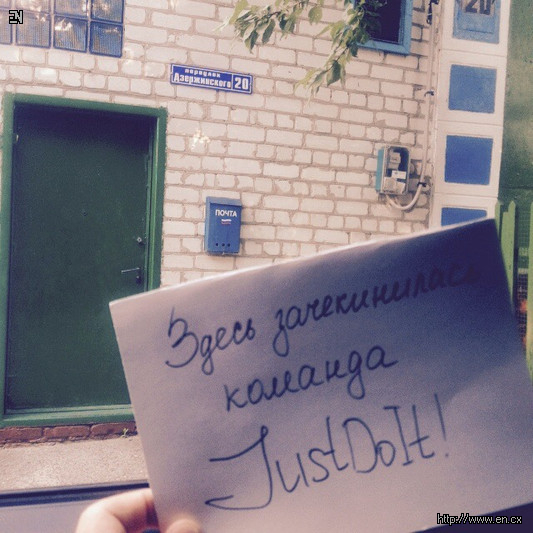 EN
20
переулок
Дзержинского 20
ПОЧТА
Здесь зачекинилась
команда
JustDoIt!
http://www.en.cx